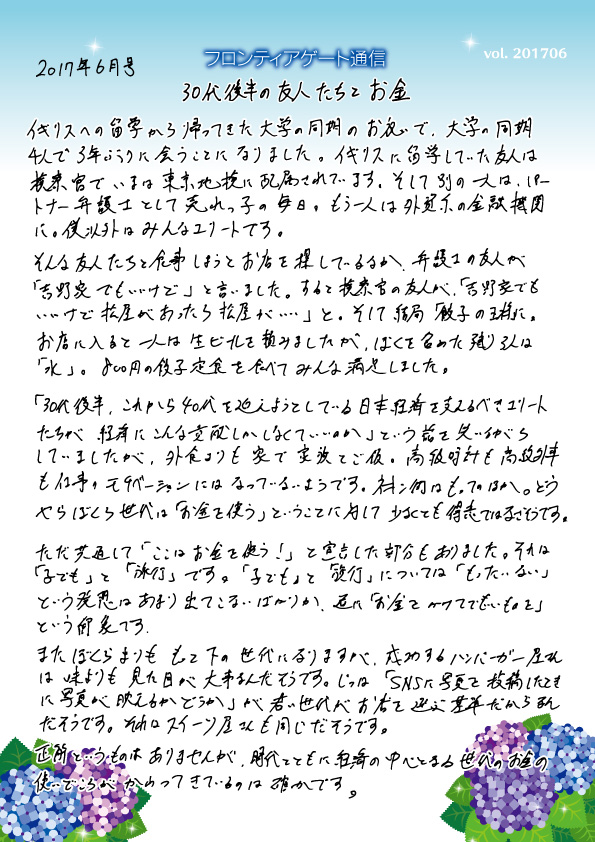 フロンティアゲート通信
vol. 201706
2017年6月号
30代後半の友人たちとお金
イギリスへの留学から帰ってきた大学の同期のお祝いで、大学の同期
4人で3年ぶりに会うことになりました。イギリスに留学していた友人は
検察官でいまは東京地検に配属されています。そして別の一人は、パー
トナー弁護士として売れっ子の毎日。もう一人は外資系の金融機関
に。僕以外はみんなエリートです。
そんな友人たちと食事しようとお店を探しているなか、弁護士の友人が
「吉野家でもいいけど」と言いました。すると検察官の友人が、「吉野家でも
いいけど松屋があったら松屋がいい」と。そして結局「餃子の王将」に。
お店に入ると一人は生ビールを頼みましたが、ぼくを含めた残り3人は
「水」。800円の餃子定食を食べてみんな満足しました。
「30代後半、これから40代を迎えようとしている日本経済を支えるべきエリート
たちが経済にこんな貢献しかしなくていいのか」という話を笑いながら
していましたが、外食よりも家で家族とご飯。高級時計も高級外車
も仕事のモチベーションにはなっていないようです。銀座はもってのほか。どう
やらぼくら世代は「お金を使う」ということに対して少なくとも得意ではなさそうです。
ただ共通して「ここはお金を使う！」と宣言した部分もありました。それは
「子ども」と「旅行」です。「子ども」と「旅行」については「もったいない」
という発想はあまり出てこないばかりか、逆に「お金をかけてでもいいものを」
という印象です。
またぼくらよりももっと下の世代になりますが、成功するハンバーガー屋さん
は味よりも見た目が大事なんだそうです。じつは「SNSに写真を投稿したとき
に写真が映えるかどうか」が若い世代がお店を選ぶ基準だからなん
だそうです。それはスイーツ屋さんも同じだそうです。
正解というものはありませんが、時代とともに経済の中心となる世代のお金の
使いどころがかわってきているのは確かです。